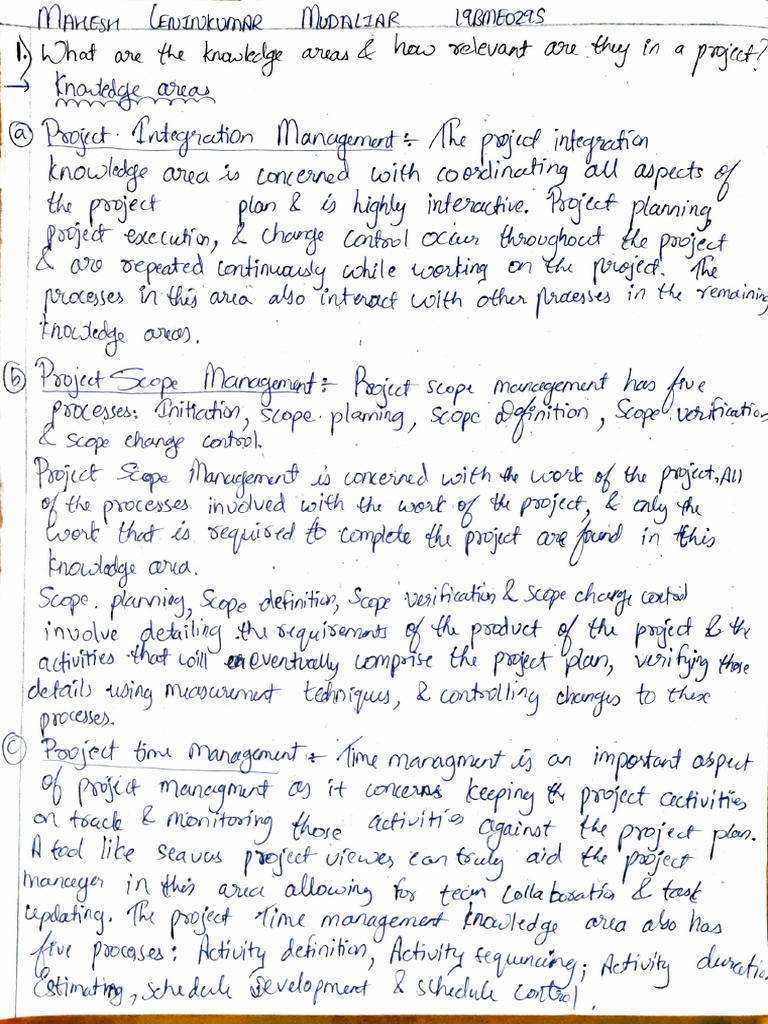 MAHESH LENINKUMAR MUDALIAR 19BME0295
1.) What are the knowledge areas & how relevant are they in a project?
→ Knowledge areas
(a) Project Integration Management :- The project integration
knowledge area is concerned with coordinating all aspects of
the project plan & is highly interactive. Project planning,
project execution, & change control occur throughout the project
& are repeated continuously while working on the project. The
processes in this area also interact with other processes in the remaining
knowledge areas.
(b) Project Scope Management :- Project scope management has five
processes: Initiation, scope planning, scope Definition, Scope verification
& scope change control.
Project Scope Management is concerned with the work of the project, All
of the processes involved with the work of the project, & only the
work that is required to complete the project are found in this
knowledge area.
Scope planning, Scope definition, Scope verification & Scope change control
involve detailing the requirements of the product of the project & the
activities that will eventually comprise the project plan, verifying those
details using measurement techniques, & controlling changes to these
processes.
(c) Project time Management :- Time managment is an important aspect
of project managment as it concerns keeping the project activities
on track & monitoring those activities against the project plan.
A tool like seavus project viewer can truly aid the project
manager in this area allowing for team collaboration & task
updating. The project Time management knowledge area also has
five processes: Activity definition, Activity sequencing; Activity duration
Estimating, schedule Development & schedule control.